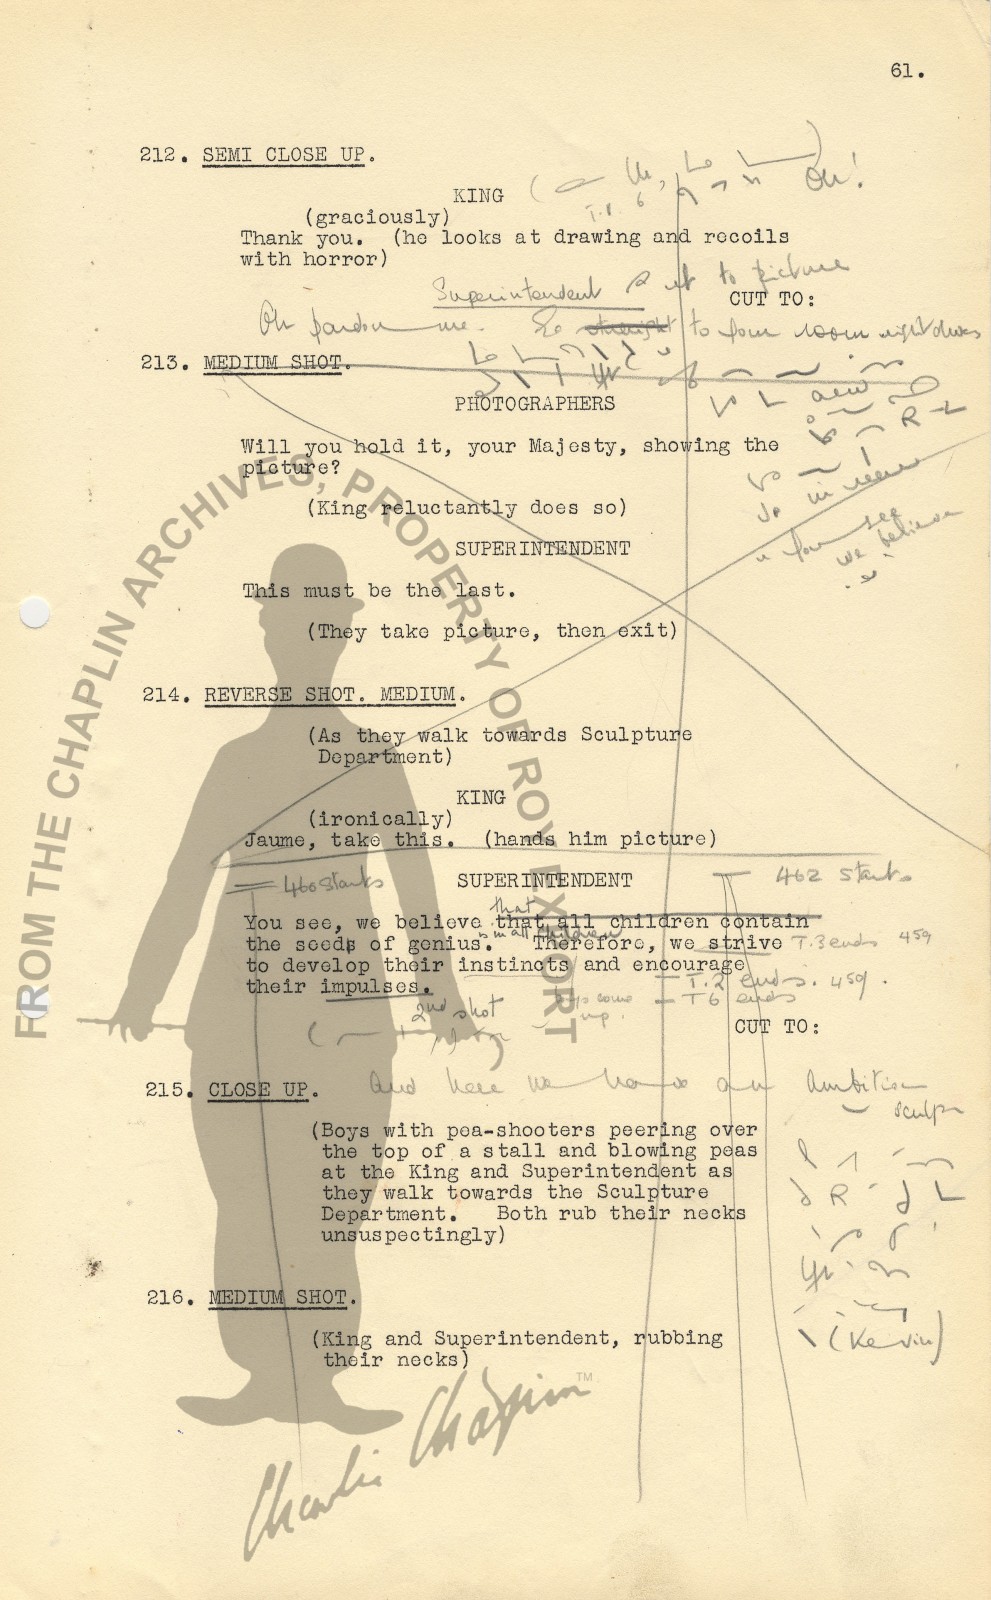 61.
212. SEMI CLOSE UP.
Oh!
KING
(graciously)
T.1. 6
Thank you. (he looks at drawing and recoils
with horror)
Superintendent cut to picture
CUT TO:
Oh pardon me. straight to four room
213. MEDIUM SHOT.
PHOTOGRAPHERS
Will you hold it, your Majesty, showing the
picture?
(King reluctantly does so)
see
we believe
SUPERINTENDENT
This must be the last.
(They take picture, then exit)
214. REVERSE SHOT. MEDIUM.
(As they walk towards Sculpture
Department)
KING
(ironically)
Jaume, take this. (hands him picture)
460 starts
SUPERINTENDENT
462 starts
that
You see, we believe that all children contain
in all children
the seeds of genius. Therefore, we strive T.3 ends 459
to develop their instincts and encourage
T.2 ends. 459.
their impulses.
T6 ends
2nd shot
boys come
up.
CUT TO:
215. CLOSE UP.
And here we have an ambitious
sculptor
(Boys with pea-shooters peering over
the top of a stall and blowing peas
at the King and Superintendent as
they walk towards the Sculpture
Department. Both rub their necks
unsuspectingly)
216. MEDIUM SHOT.
(King and Superintendent, rubbing
their necks)
(Kevin)
FROM THE CHAPLIN ARCHIVES, PROPERTY OF ROY EXPORT
Charlie Chaplin™